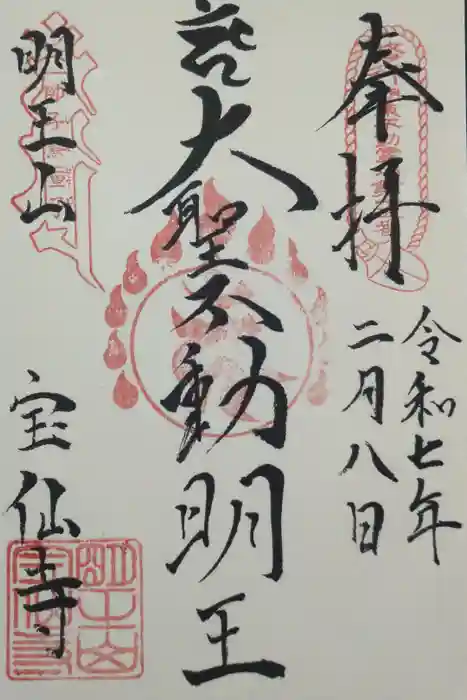 奉拝
令和七年
二月八日
大聖不動明王
明王山
宝仙寺